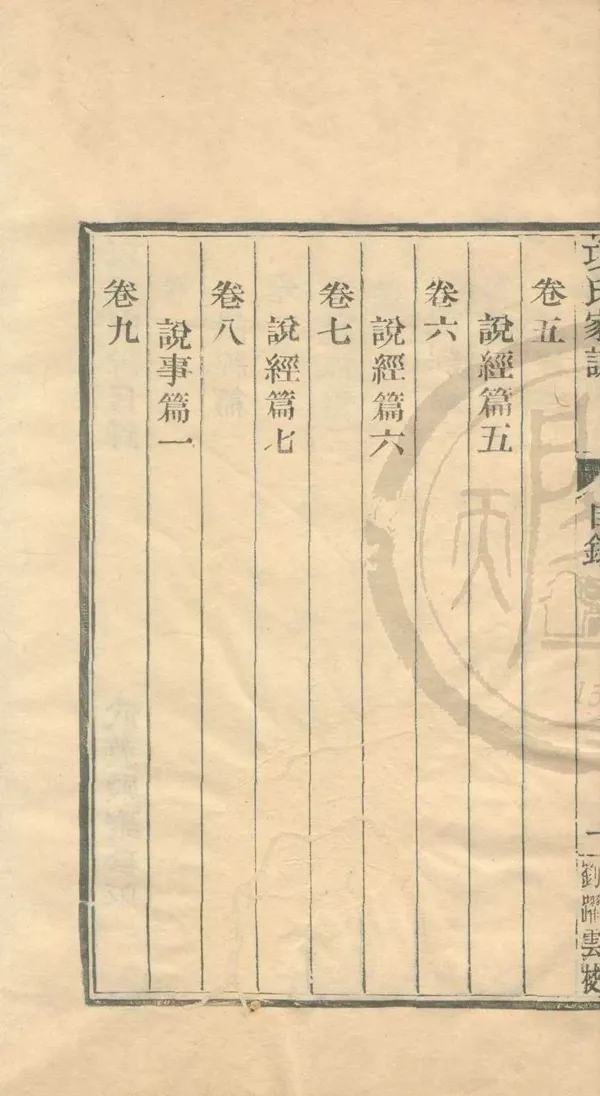 項氏家說
目錄
一
劉躍雲校
卷五
說經篇五
卷六
說經篇六
卷七
說經篇七
卷八
說事篇一
卷九